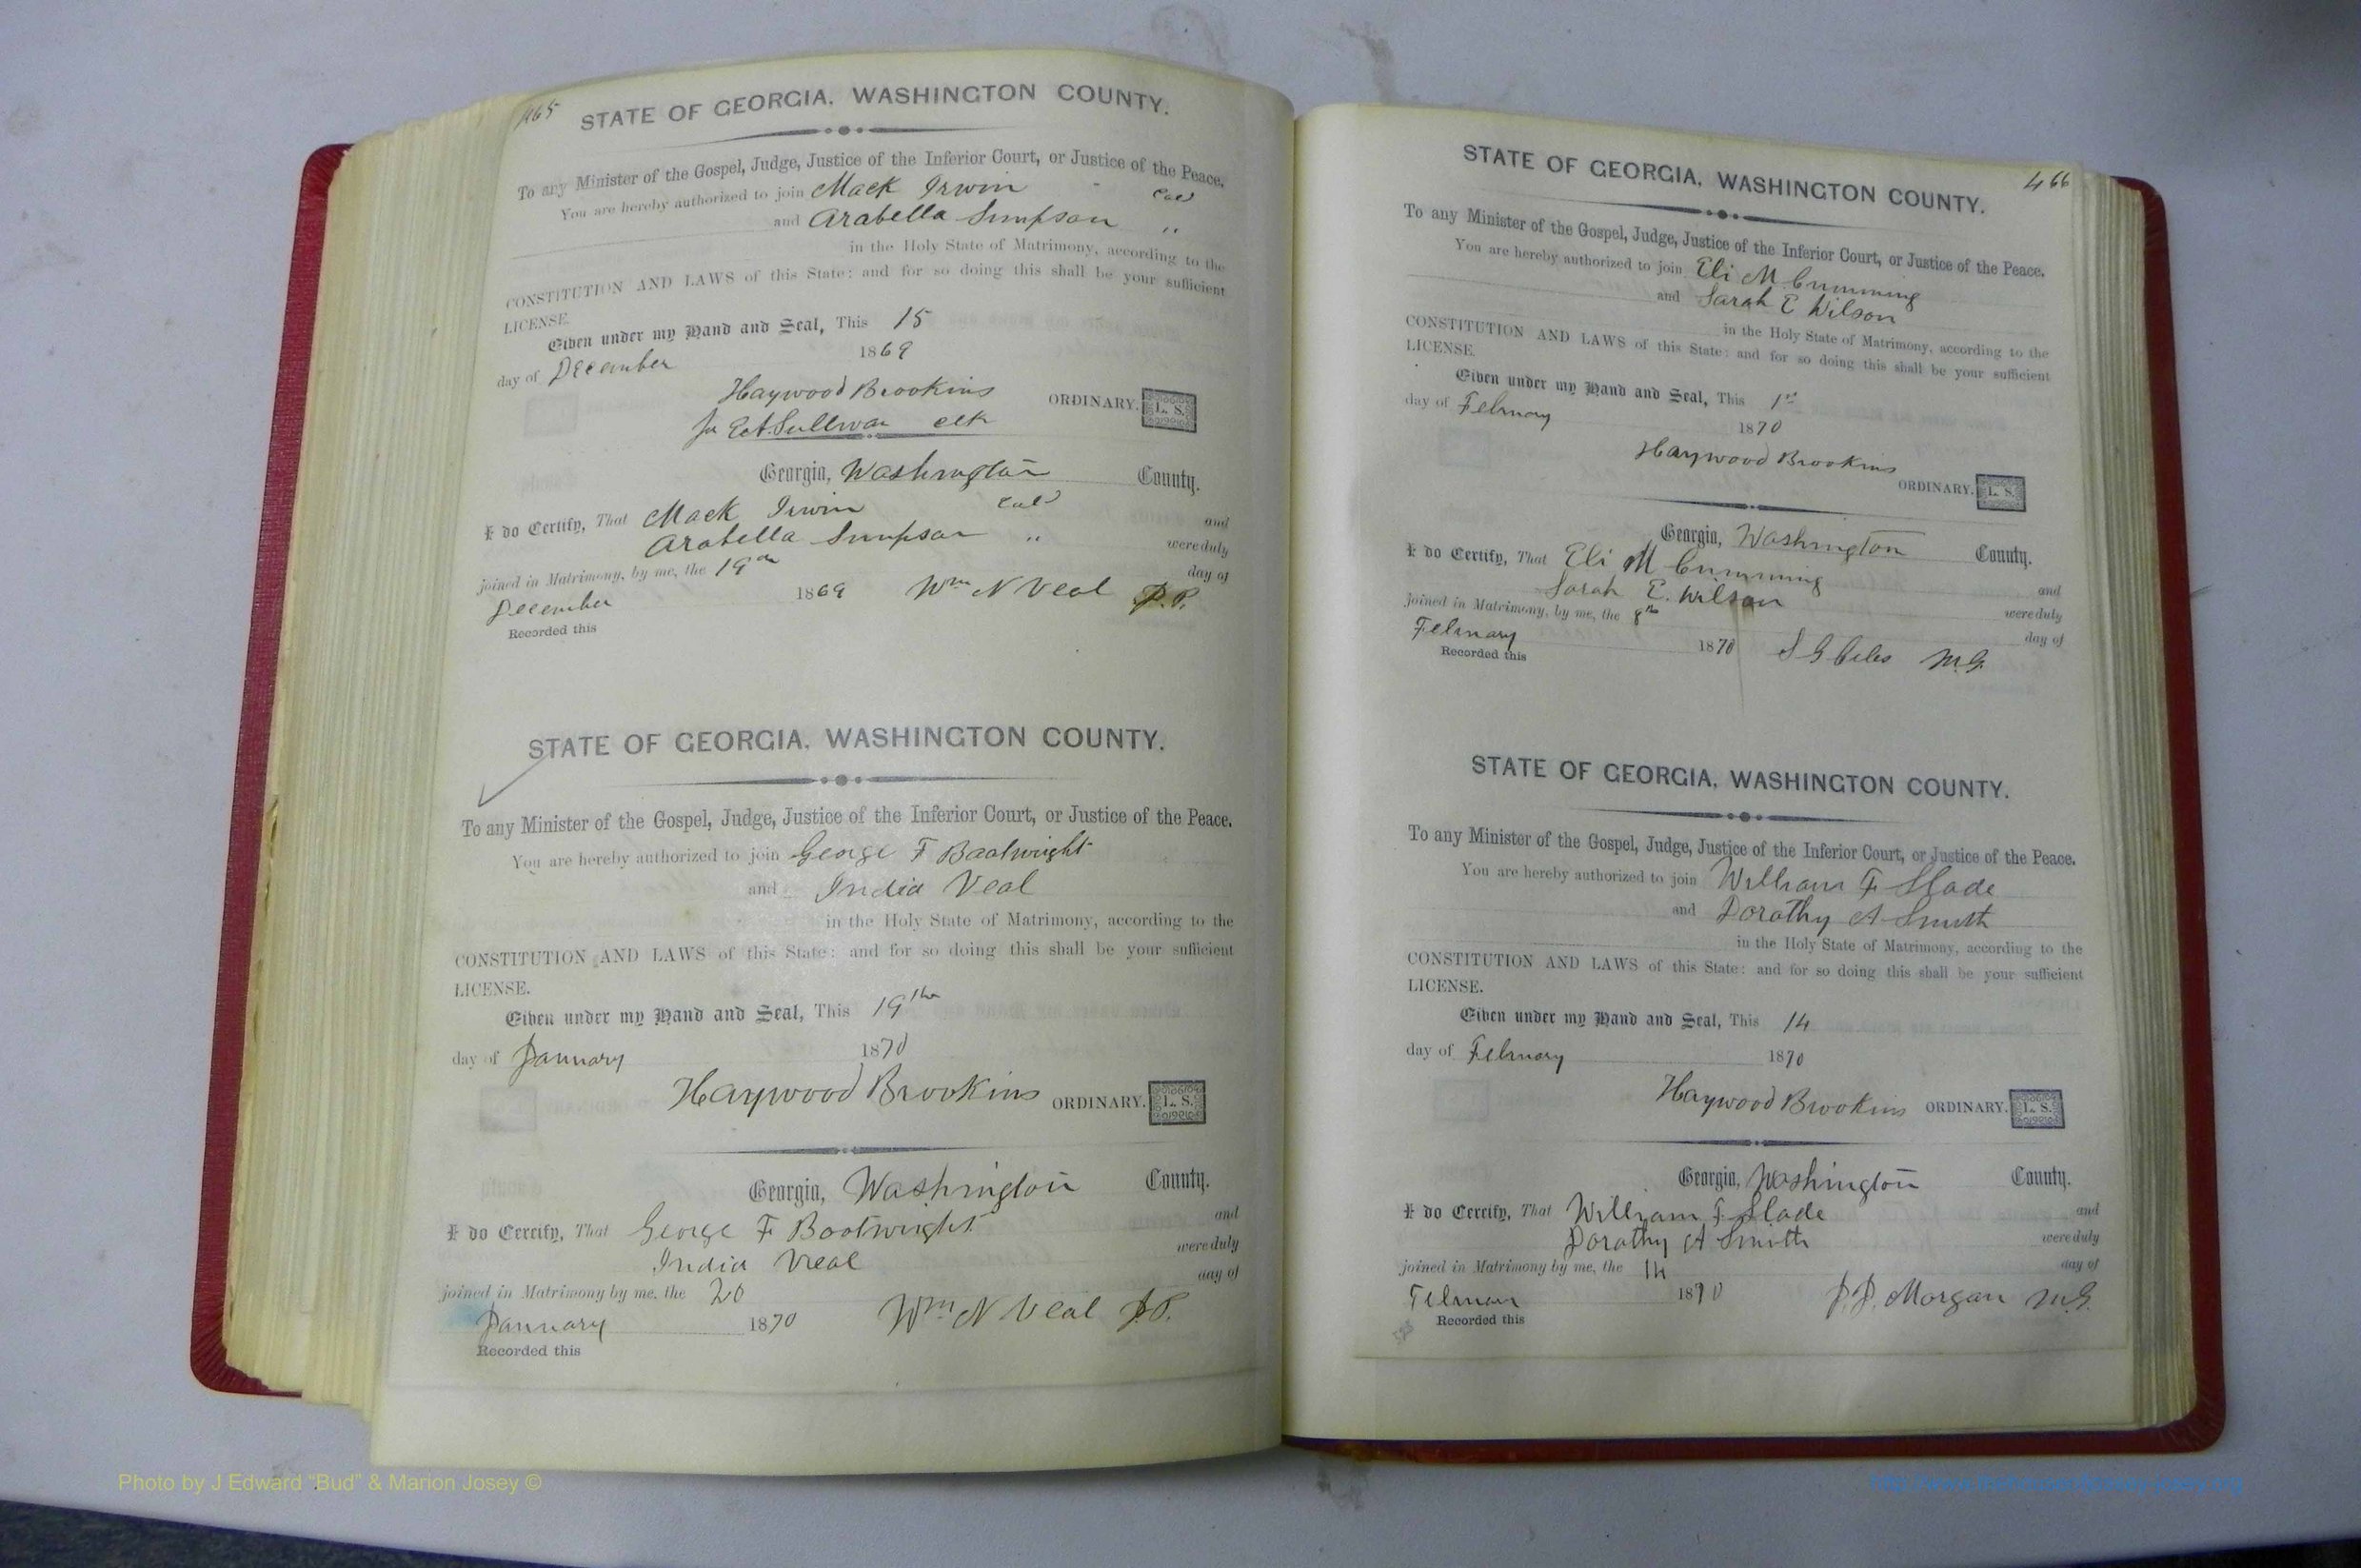 465
STATE OF GEORGIA, WASHINGTON COUNTY.
To any Minister of the Gospel, Judge, Justice of the Inferior Court, or Justice of the Peace.
You are hereby authorized to join Mack Irwin Col
and Arabella Simpson "
in the Holy State of Matrimony, according to the
CONSTITUTION AND LAWS of this State: and for so doing this shall be your sufficient
LICENSE.
Given under my Hand and Seal, This 15
day of December 1869
Haywood Brookins ORDINARY. L. S.
Sullivan clk
Georgia, Washington County.
I do Certify, That Mack Irwin Col and
Arabella Simpson " were duly
joined in Matrimony, by me, the 19th day of
December 1869 Wm N Veal J.P.
Recorded this
STATE OF GEORGIA, WASHINGTON COUNTY.
To any Minister of the Gospel, Judge, Justice of the Inferior Court, or Justice of the Peace.
You are hereby authorized to join George F Boatwright
and India Veal
in the Holy State of Matrimony, according to the
CONSTITUTION AND LAWS of this State: and for so doing this shall be your sufficient
LICENSE.
Given under my Hand and Seal, This 19th
day of January 1870
Haywood Brookins ORDINARY. L. S.
Georgia, Washington County.
I do Certify, That George F Boatwright and
India Veal were duly
joined in Matrimony by me, the 20 day of
January 1870 Wm N Veal J.P.
Recorded this
466
STATE OF GEORGIA, WASHINGTON COUNTY.
To any Minister of the Gospel, Judge, Justice of the Inferior Court, or Justice of the Peace.
You are hereby authorized to join Eli M Cumming
and Sarah E Wilson
in the Holy State of Matrimony, according to the
CONSTITUTION AND LAWS of this State: and for so doing this shall be your sufficient
LICENSE.
Given under my Hand and Seal, This 1st
day of February 1870
Haywood Brookins
ORDINARY. L. S.
Georgia, Washington County.
I do Certify, That Eli M Cumming and
Sarah E. Wilson were duly
joined in Matrimony, by me, the 8th day of
February 1870 S G M.G.
Recorded this
STATE OF GEORGIA, WASHINGTON COUNTY.
To any Minister of the Gospel, Judge, Justice of the Inferior Court, or Justice of the Peace.
You are hereby authorized to join William F Slade
and Dorathy A Smith
in the Holy State of Matrimony, according to the
CONSTITUTION AND LAWS of this State: and for so doing this shall be your sufficient
LICENSE.
Given under my Hand and Seal, This 14
day of February 1870
Haywood Brookins ORDINARY. L. S.
Georgia, Washington County.
I do Certify, That William F. Slade and
Dorathy A Smith were duly
joined in Matrimony by me, the 14 day of
Februar 1870 J.J. Morgan M.G.
Recorded this
Photo by J Edward "Bud" & Marion Josey ©